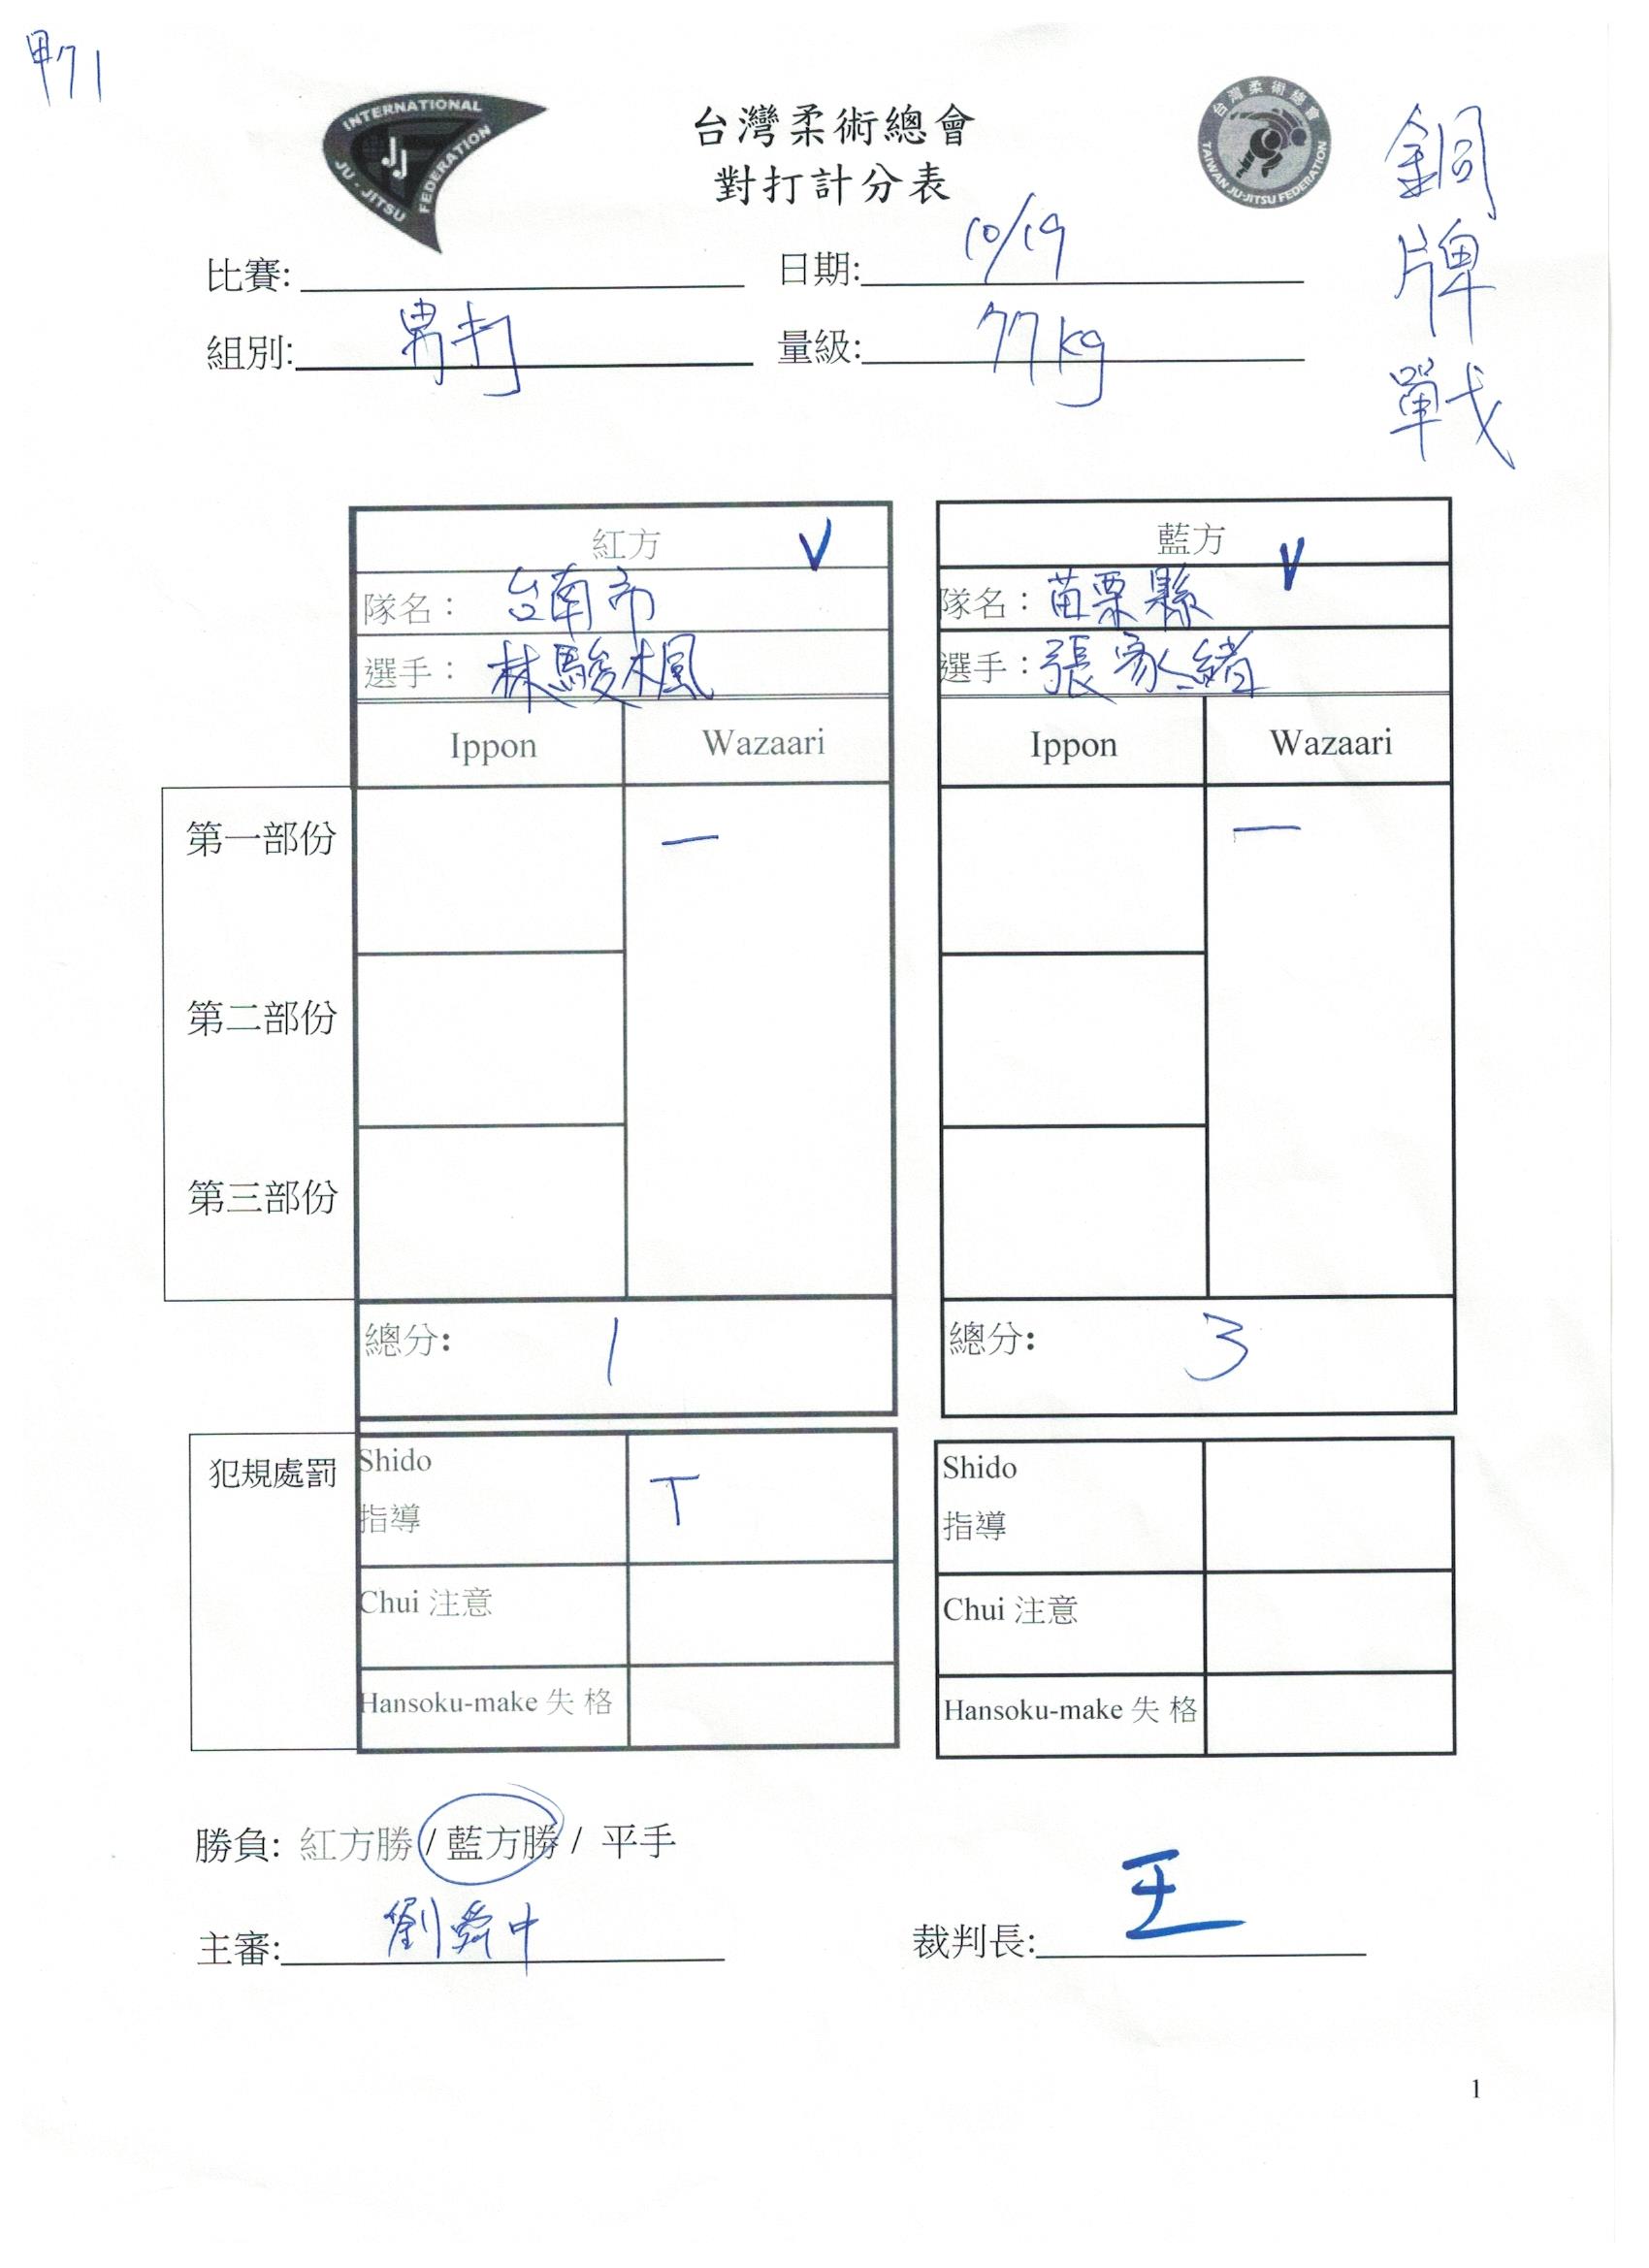 甲71
INTERNATIONAL
JU-JITSU
FEDERATION
JJ
台灣柔術總會
對打計分表
台灣柔術總會
TAIWAN JU-JITSU FEDERATION
銅牌戰
比賽:
日期: 10/19
組別: 男打
量級: 77kg
紅方 V
藍方 V
隊名: 台南市
隊名: 苗栗縣
選手: 林駿楓
選手: 張家緒
Ippon Wazaari
Ippon Wazaari
第一部份 一 一
第二部份
第三部份
總分: 1
總分: 3
犯規處罰
Shido
指導 T
Chui 注意
Hansoku-make 失 格
Shido
指導
Chui 注意
Hansoku-make 失 格
勝負: 紅方勝 / 藍方勝 / 平手
主審: 劉舜中
裁判長: 王
1